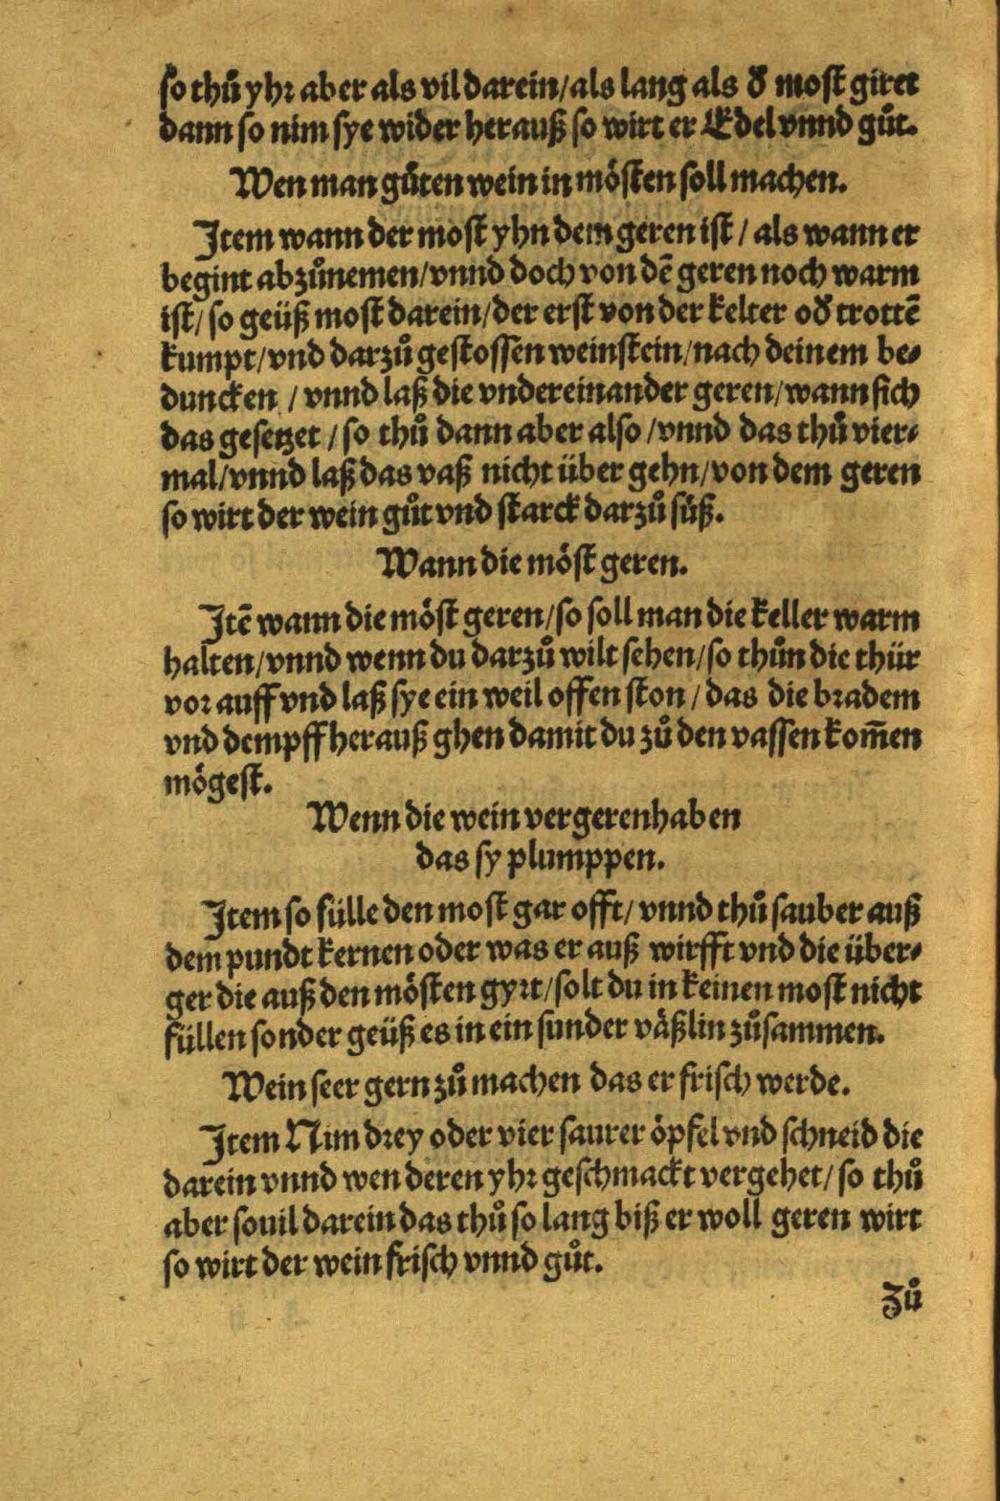 so thuͦ yhr aber als vil darein/als lang als d' most giret
dann so nim sye wider herauß so wirt er Edel vnnd guͦt.
Wen man guͦten wein in moͤsten soll machen.
Item wann der most yhn dem geren ist / als wann er
begint abzuͦnemen/vnnd doch von dē geren noch warm
ist/ so geüß most darein/der erst von der kelter od' trottē
kumpt/vnd darzuͦ gestossen weinstein/nach deinem be⸗
duncken / vnnd laß die vndereinander geren/wann sich
das gesetzet / so thuͦ dann aber also /vnnd das thuͦ vier⸗
mal/vnnd laß das vaß nicht über gehn/von dem geren
so wirt der wein guͦt vnd starck darzuͦ süß.
Wann die moͤst geren.
Itē wann die moͤst geren/so soll man die keller warm
halten/vnnd wenn du darzuͦ wilt sehen/so thuͦn die thür
vor auff vnd laß sye ein weil offen ston / das die bradem
vnd dempff herauß ghen damit du zuͦ den vassen kom̄en
moͤgest.
Wenn die wein vergeren haben
das sy plumppen.
Item so fülle den most gar offt/ vnnd thuͦ sauber auß
dem pundt kernen oder was er auß wirfft vnd die über⸗
ger die auß den moͤsten gyrt/solt du in keinen most nicht
füllen sonder geüß es in ein sunder vaͤßlin zuͦsammen.
Wein seer gern zuͦ machen das er frisch werde.
Item Nim drey oder vier saurer oͤpfel vnd schneid die
darein vnnd wen deren yhr geschmackt vergehet/ so thuͦ
aber souil darein das thuͦ so lang biß er woll geren wirt
so wirt der wein frisch vnnd guͦt.
Zuͦ